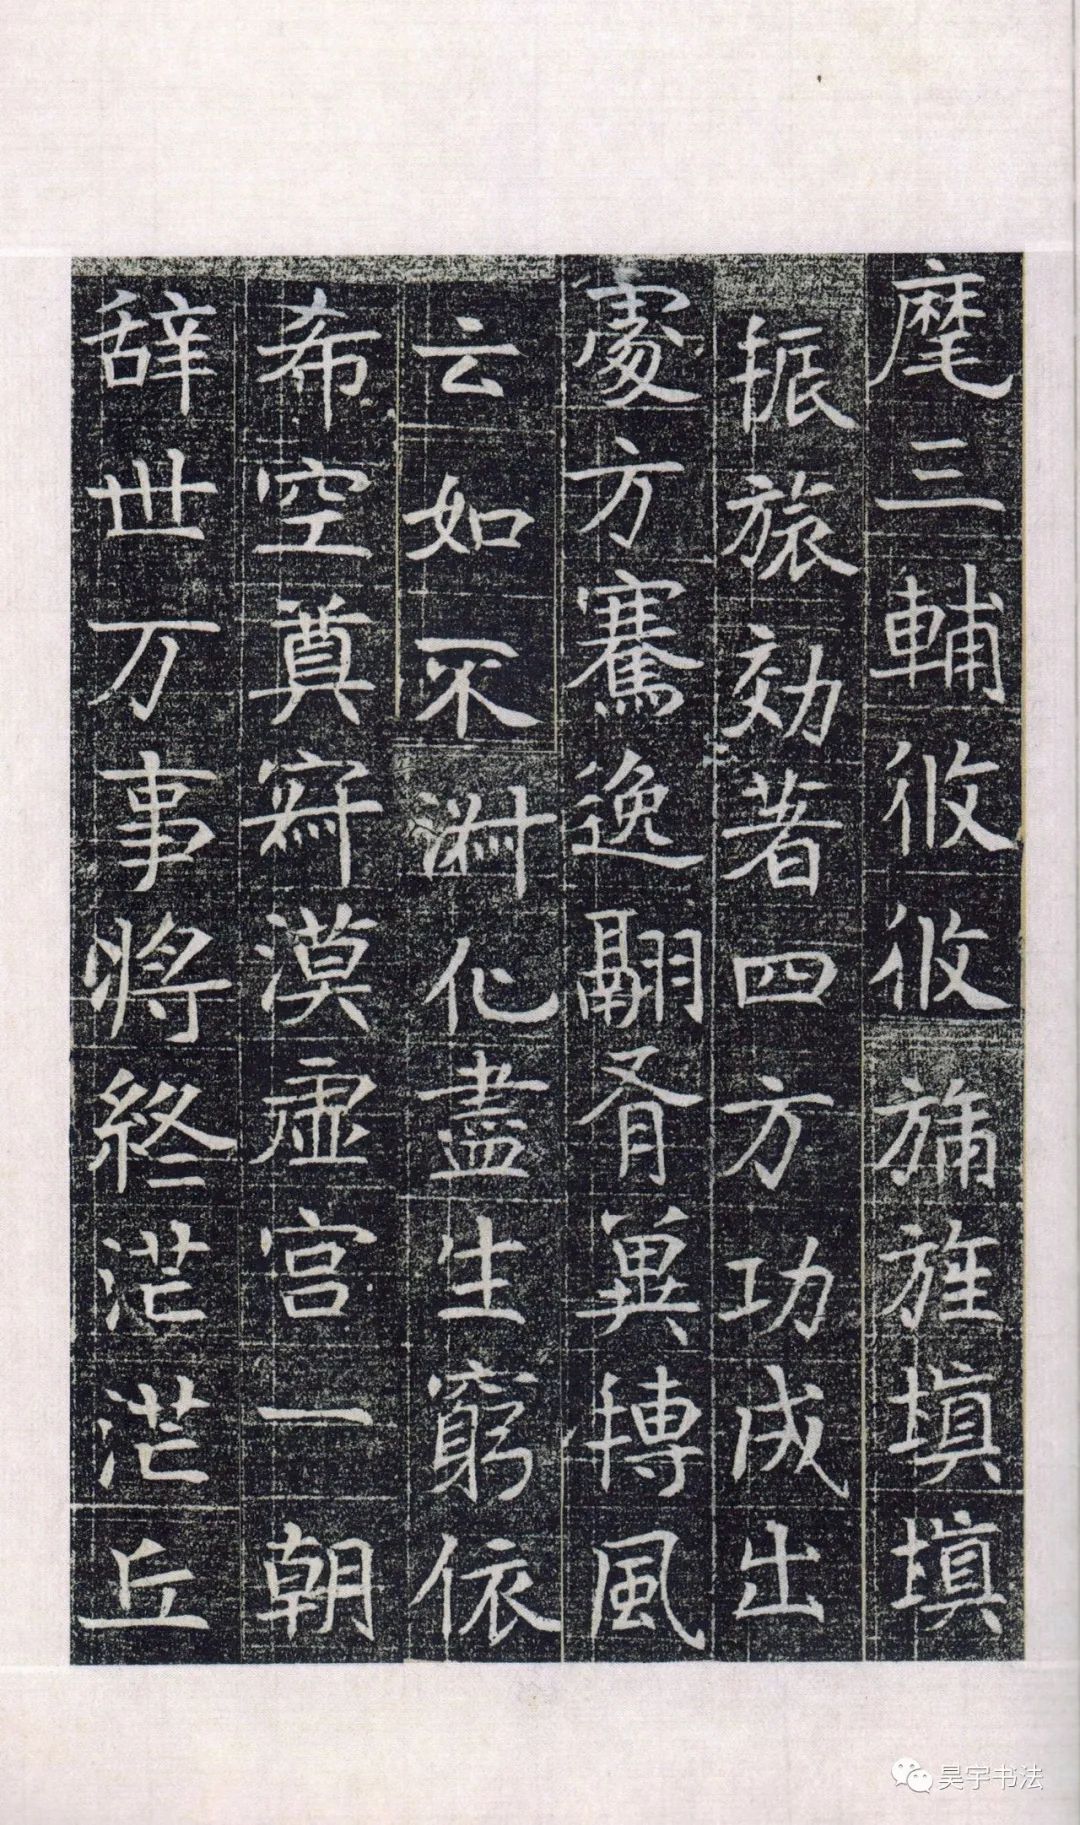 麾三輔攸攸旆旌填填
振旅効著四方功成出
處方騫逸翮胥翼摶風
云如不淋化盡生窮依
希空奠寂漠虛宫一朝
辞世万事將終茫茫丘
昊宇书法